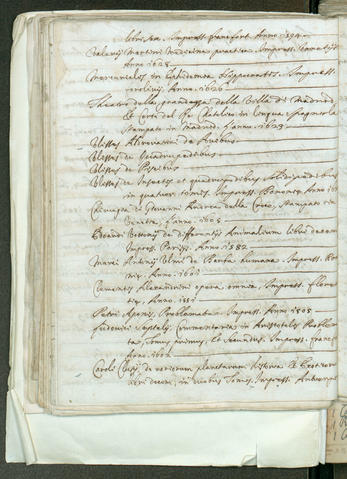 libri sex. Impress. francfort. Anno 1594.
Valerij Martini Medicina practica. Impress.
Anno 1628.
in Epidemia Hippocratis. Impress.
Anno 1626
Theatro delle grandezze della Villa di Madrid,
et Corte del Re Catolico in lingua spagnola
Stampato in Madrid. l'anno 1623
Ulissis Aldrovandi de Avibus
Ulissis de Quadrupedibus
Ulissis de Piscibus
Ulissis de Insectis et quadrupedibus
in quatuor tomis. Impress. Bononiae. Anno
Chirurgia di Giovanni Andrea della Croce, stampata in
Venetia, l'anno 1605
Edoardi Vottonij de differentijs Animalium libri decem
Impress. Parisijs. Anno 1552
Marci Antonij Ulmi de Barba humana. Impress.
Anno 1603
Clementis Alexandrini opera omnia, Impress. Floren
tiae, Anno. 1551
Petri Aponi, Problemata. Impress. Anno 1505
Ludovici Septalij Commentarius in Aristotelis Proble
mata, tomus primus, et secundus. Impress. Francf
Anno 1602
Caroli Clusij de rariorum plantarum historia, et Exoticorum
libri decem, in duobus tomis. Impress. Antuerpiae